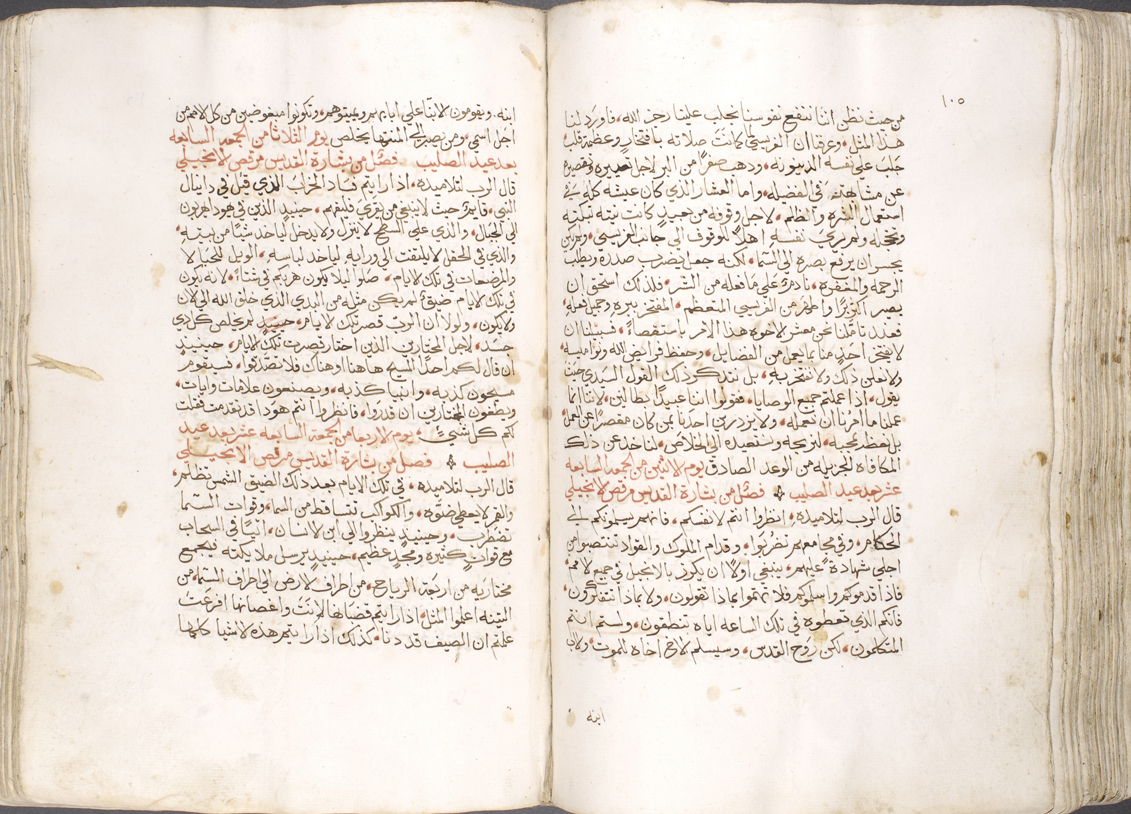 ١٠٥
من حيث نظن اننا ننفع نفوسنا نجلب علينا رجز الله، فاورد لنا
هذا المثل، وعرفنا ان الفريسي لما كانت صلاته بافتخار وعظمة قلب
جلب على نفسه الدينونه، وذهب صفرًا من البر لاجل
عن في الفضيله، واما العشار الذي كان عيشه كله في
استعمال الشره والظلم، لاجل وقوفه من بعيد كانت نيته تبكته
وتخجله ولم يرى نفسه اهلاً للوقوف الى جانب الفريسي، ولم يكن
يجسر ان يرفع بصره الى السما، لكنه جعل يضرب صدره ويطلب
الرحمه والمغفره، نادمًا على ما فعله من الشر، فلذلك استحق ان
يصير اكثر برًا وطهرًا من الفريسي المتعظم، المفتخر ببره وجميل فعله،
فعند تاملنا نحن معشر الاخوه هذا الامر باستقصاءً، فسبيلنا ان
لا يفتخر احد منا بما يعمل من الفضايل، وحفظ فرايض الله
ولا يعلن ذلك ولا نفتخر به، بل نتذكر ذلك القول السيدي حيث
يقول، اذا عملتم جميع الوصايا، فقولوا اننا عبيدًا بطالين، لاننا انما
عملنا ما امرنا ان نعمله، ولا يزدري احدنا بمن كان مقصرًا عن العمل
بل نعظه بمحبه، لنربحه ونستعيده الى الخلاص، لناخذ عن ذلك
المكافاه الجزيله من الوعد الصادق يوم الاثنين من الجمعه السابعه
عشر بعد عيد الصليب فصل من بشارة القديس مرقص الانجيلي
قال الرب لتلاميذه، انظروا انتم لانفسكم، فانهم يسلمونكم الى
الحكام، وفي مجامعهم تضربوا، وقدام الملوك والقواد تنتصبوا من
اجلي شهادة عليهم، ينبغي اولاً ان يكرز بالانجيل في جميع الامم
فاذا قدموكم واسلموكم فلا تهتموا بماذا تقولون، ولا بماذا تتفكرون،
فانكم الذي تعطوه في تلك الساعه اياه تنطقون، ولستم انتم
المتكلمون، لكن روح القدس، وسيسلم الاخ اخاه للموت، والاب
ابنه
ابنه، ويقومون الابنا على ابايهم ويميتوهم، وتكونوا مبغوضين من كل الامم من
اجل اسمي، ومن يصبر الى المنتها يخلص يوم الثلاثا من الجمعه السابعه
بعد عيد الصليب فصل من بشارة القديس مرقص الانجيلي
قال الرب لتلاميذه، اذا رايتم فساد الخراب الذي قيل في دانيال
النبي، قايمة حيث لا ينبغي من يقري فليفهم، حينيذ الذين في يهودا يهربون
الى الجبال، والذي على السطح لا ينزل ولا يدخل لياخذ شيًا من بيته،
والذي في الحقل لا يلتفت الى ورايه لياخذ لباسه، الويل للحبالا
والمرضعات في تلك الايام، صلوا ليلا يكون هربكم في شتاءً، لانه يكون
في تلك الايام ضيق لم يكن مثله من البدي الذي خلق الله الى الان
ولا يكون، ولولا ان الرب قصر تلك الايام، حينيذ لم يخلص كل ذي
جسد، لاجل المختارين الذين اختار قصرت تلك الايام، حينيذ
ان قال لكم احد المسيح هاهنا او هناك فلا تصدقوا، فسيقوم
مسيحون كذبه، وانبيا كذبه، ويصنعون علامات وايات،
ويطغون المختارين ان قدروا، فانظروا انتم هوذا قد تقدمت فقلت
لكم كل شئ، يوم الاربعا من الجمعه السابعه عشر بعد عيد
الصليب فصل من بشارة القديس مرقص الانجيلي
قال الرب لتلاميذه، في تلك الايام بعد ذلك الضيق الشمس تظلم،
والقمر لا يعطي ضؤه، والكواكب تتساقط من السما، وقوات السما
تضطرب، وحينيذ ينظروا الى ابن الانسان، اتيًا في السحاب
مع قوات كثيره ومجد عظيم، حينيذ يرسل ملايكته فيجمع
مختاريه من اربعة الرياح، من اطراف الارض الى اطراف السما، من
التينه اعلموا المثل، اذا رايتم قضبانها لانت واغصانها افرعت
علمتم ان الصيف قد دنا، كذلك اذا رايتم هذه الاشيا كلها